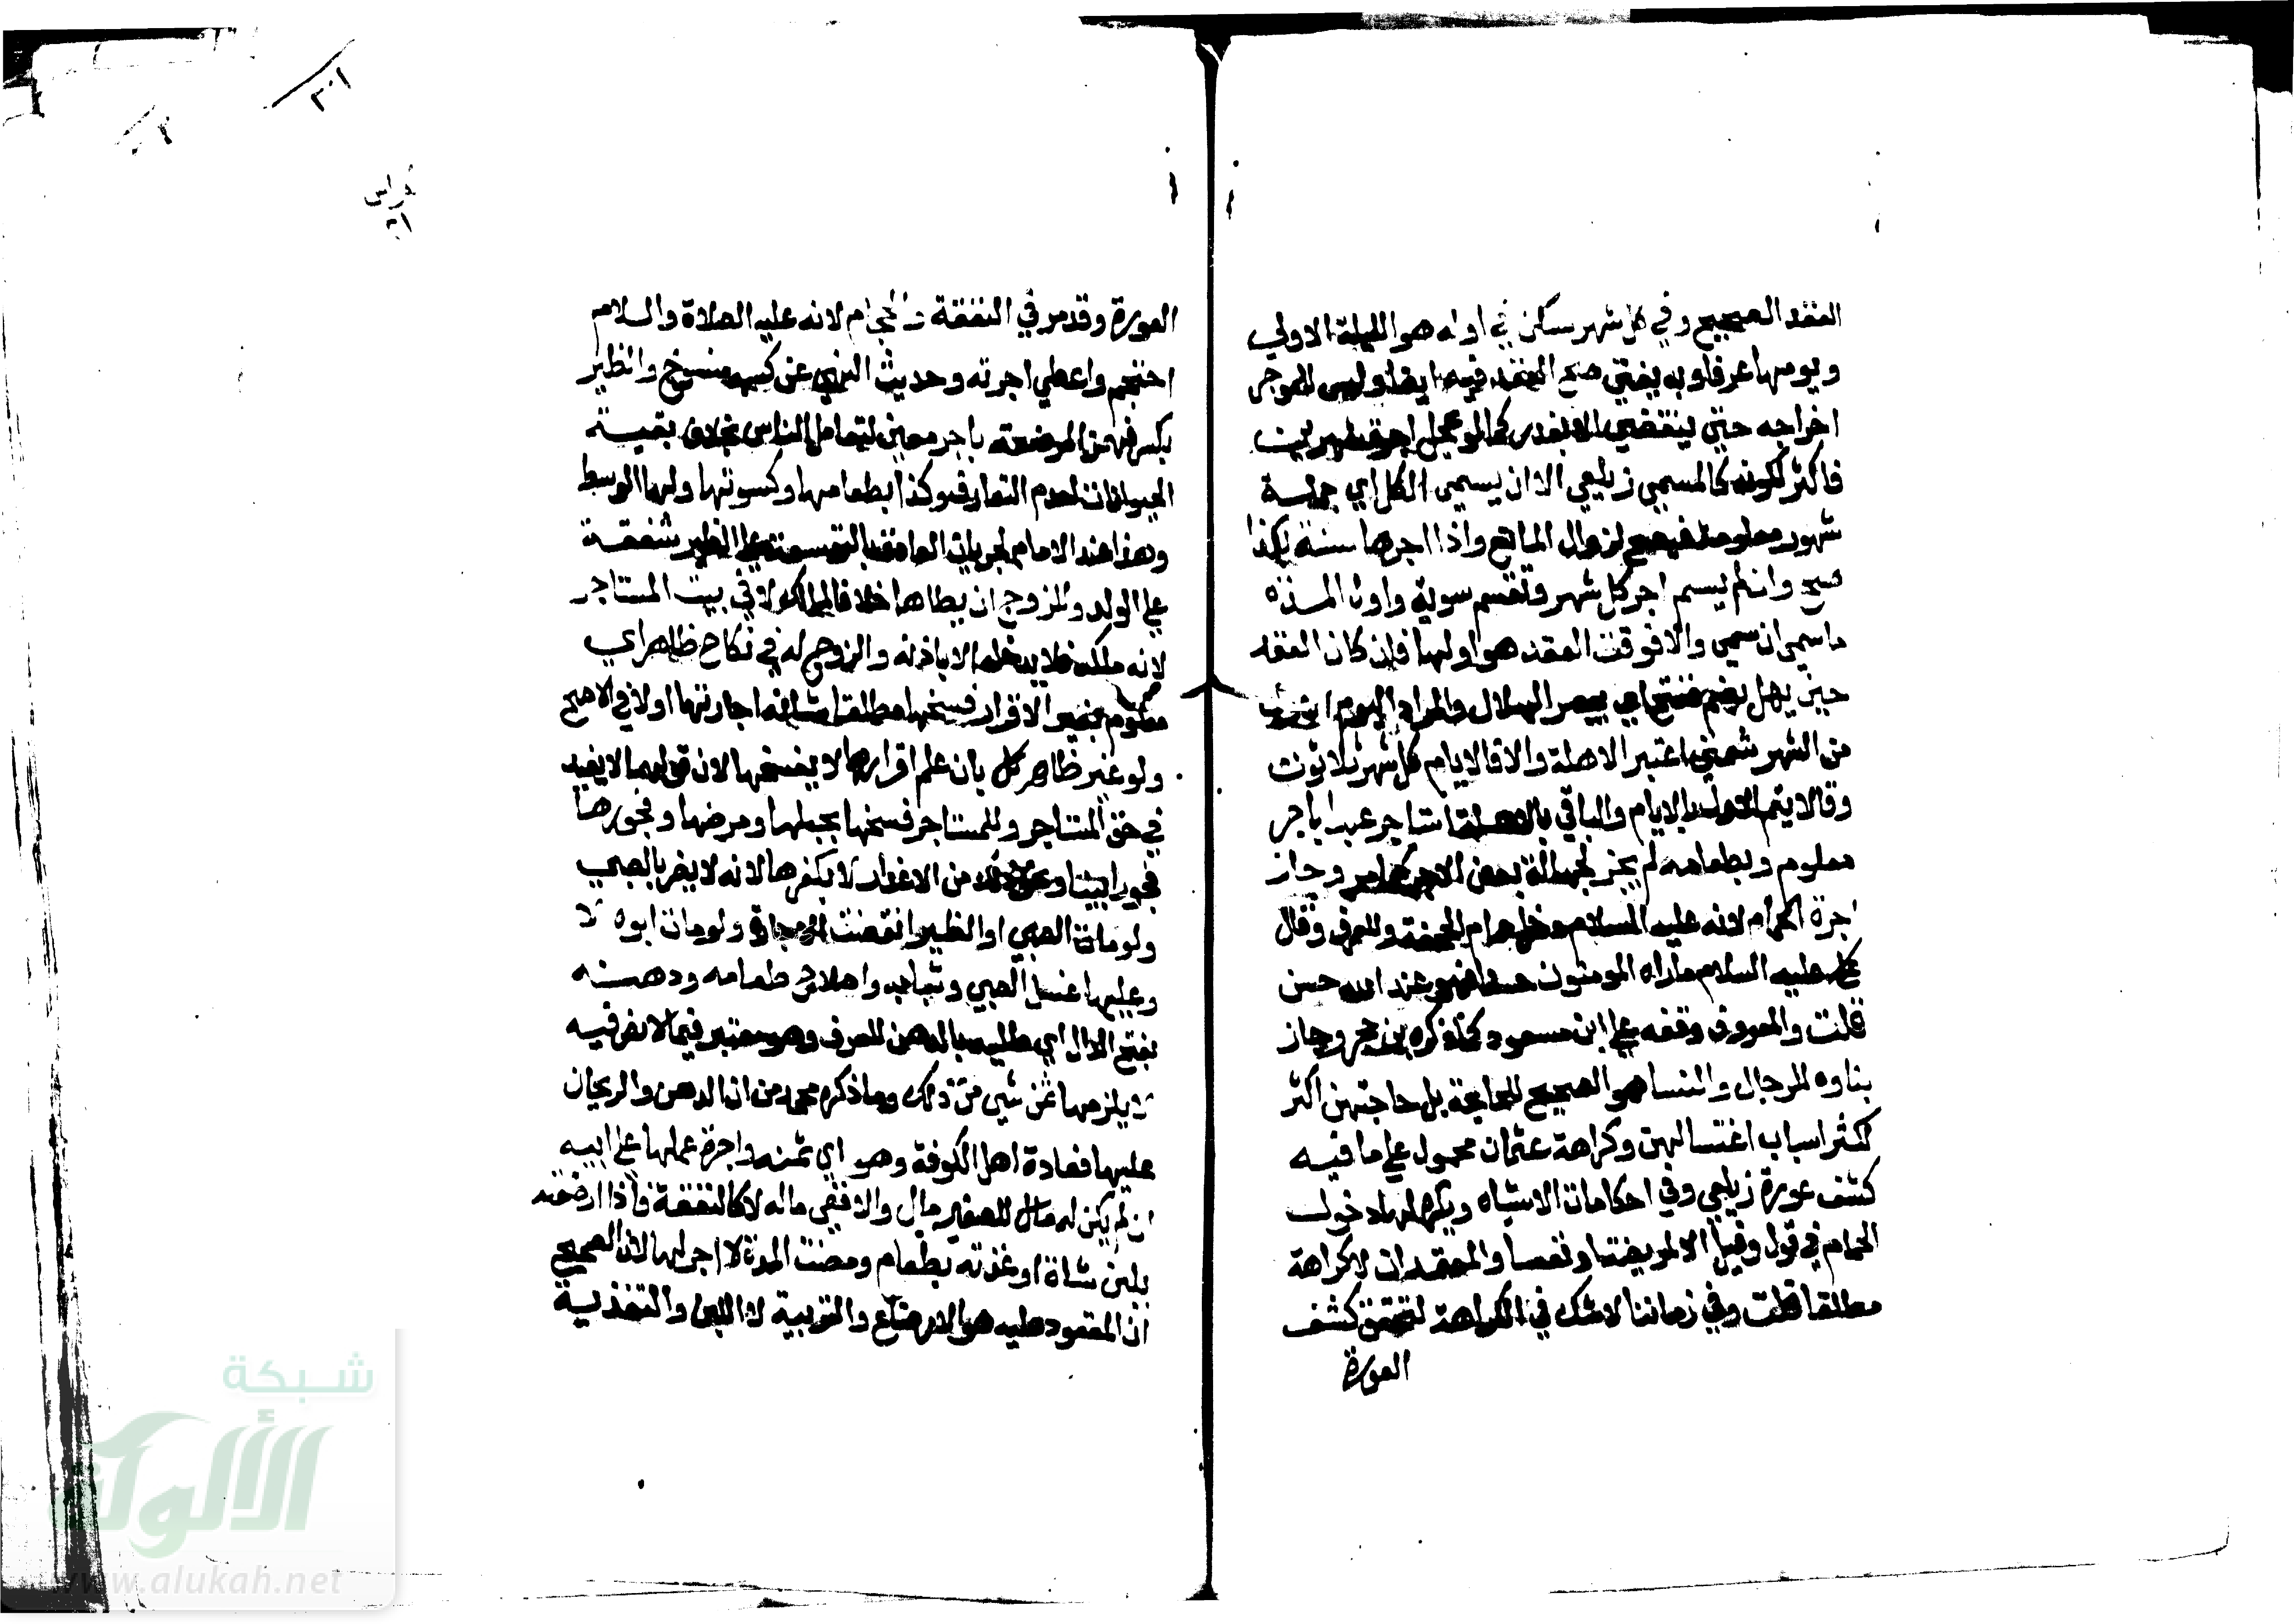 العقد الصحيح وفي كل شهر سكن في اوله هو الليلة الاولي
ويومها عرفا وبه يفتي صح العقد فيه ايضا وليس للموجر
اخراجه حتي ينقضي الا بعذر كما لو عجل اجرة شهرين
فاكثر لكونه كالمسمي زيلعي الا ان يسمي الكل اي جملة
شهور معلومة فيصح لزوال المانع واذا اجرها سنة بكذا
صح وان لم يسم اجر كل شهر وتقسم سوية واول المدة
ما سمي ان سمي والا فوقت العقد هو اولها فان كان العقد
حين يهل بضم ففتح اي يبصر الهلال والمراد اليوم
من الشهر شمني اعتبر الاهلة والا فالايام كل شهر ثلاثون
وقالا يتم الاول بالايام والباقي بالاهلة استاجر عبدا باجر
معلوم وبطعامه لم يجز لجهالة بعض الاجر كما مر وجاز
اجرة الحمام لانه عليه السلام دخل حمام الجحفة وللعرف وقال
عليه السلام ماراه المومنون حسنا فهو عند الله حسن
قلت والمعروف وقفه علي ابن مسعود كما ذكره بن حجر وجاز
بناوه للرجال والنسا هو الصحيح للحاجة بل حاجتهن اكثر
لكثر اسباب اغتسالهن وكراهة عثمان محمول علي ما فيه
كشف عورة زيلعي وفي احكامات الاشباه ويكره لها دخول
الحمام في قول وقيل الا لمريضة او نفسا والمعتمد ان لا كراهة
مطلقا قلت وفي زماننا لا شك في الكراهة لتحقق كشف
العورة
٢٠١
كراس
العورة وقد مر في النفقة والحجام لانه عليه الصلاة والسلام
احتجم واعطي اجرته وحديث النهي عن كسبه منسوخ والظير
بكسر فهمز المرضعة باجر معين لتعامل الناس بخلاف بقية
الحيوانات لعدم التعارف وكذا بطعامها وكسوتها ولها الوسط
وهذا عند الامام لجريان العادة بالتوسعة علي الظير شفقة
علي الولد وللزوج ان يطاها خلافا لمالك لا في بيت المستاجر
لانه ملكه فلا يدخله الا باذنه والزوج له في نكاح ظاهر اي
معلوم بغير الاقرار فسخها مطلقا شانه اجارتها اولا في الاصح
ولو غير ظاهر كل بان علم اقرارها لا يفسخها لان قولهما لا يقبل
في حق المستاجر وللمستاجر فسخها بحبلها ومرضها وفجورها
فجورا بينا ونحو ذلك من الاعذار لا بكفرها لانه لا يضر بالصبي
ولو مات الصبي او الظير انقضت الاجارة ولو مات ابوه لا
وعليها غسل الصبي وثيابه واصلاح طعامه ودهنه
بفتح الدال اي طليه بالدهن للعرف وهو معتبر فيما لا نص فيه
لا يلزمها ثمن شي من ذلك وما ذكره محمد من ان الدهن والريحان
عليها فعادة اهل الكوفة وهو اي ثمنه واجرة عملها علي ابيه
ان لم يكن له مال للصغير مال والا ففي ماله لا كالنفقة فاذا ارضعته
بلبن شاة او غذته بطعام ومضت المدة لا اجر لها لان الصحيح
ان المعقود عليه هو الارضاع والتربية لا اللبن والتغذية
شبكة
الألوكة
www.alukah.net